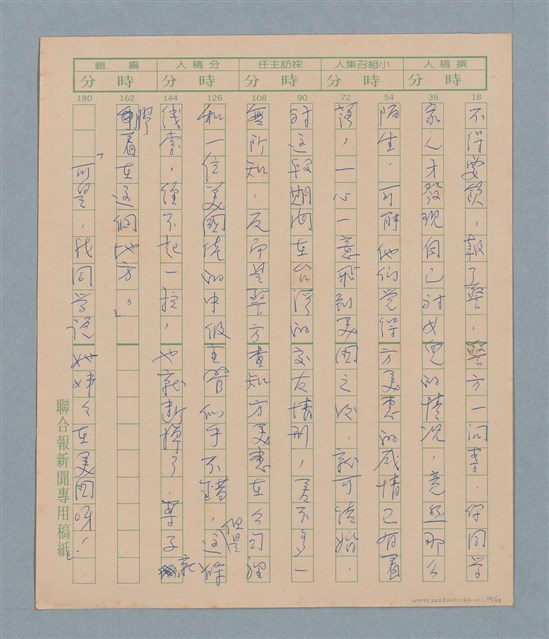 撰稿人 小組召集人 採訪主任 分稿人 編輯
時 分 時 分 時 分 時 分 時 分
18 36 54 72 90 108 126 144 162 180
不得要領，報了警，警方一問案，你同學
家人才發現自己對女兒的情況，竟然那麼
陌生，可能他們覺得方美惠的感情已有著
落，一心一意飛到美國之後，就可結婚，
對這段期間在台灣的交友情形，差不多一
無所知，反而是警方查知方美惠在公司裡
和一位美國統的中級主管似乎不錯，但是這條
線索，經不起一拉，也就斷掉了，案子就
膠著在這個地方。」
「可是，我同學說她姊姊在美國呀！」
聯合報新聞專用稿紙